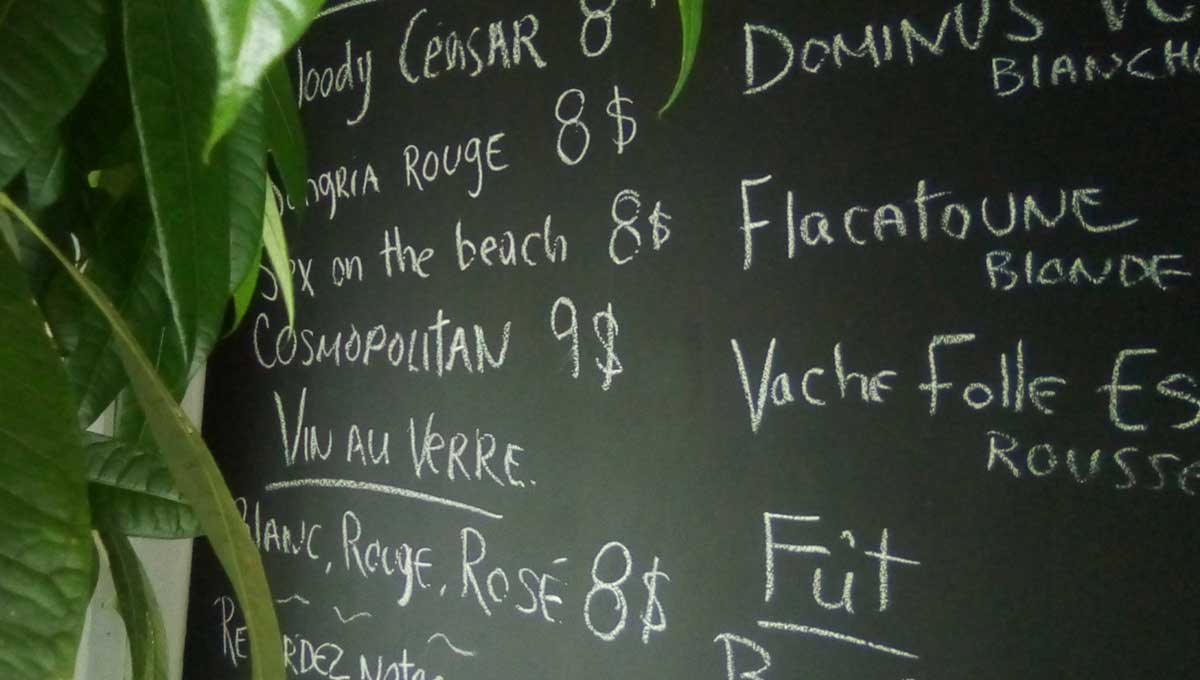 loody CEASAR 8
ngria ROUGE 8$
Sex on the beach 8$
COSMOPOLITAN 9$
VIN AU VERRE.
BLANC, ROUGE, ROSÉ 8$
DOMINUS
BLANCHE
FlacatoUNE
BLONDE
Vache Folle ES
ROUSSE
Fût